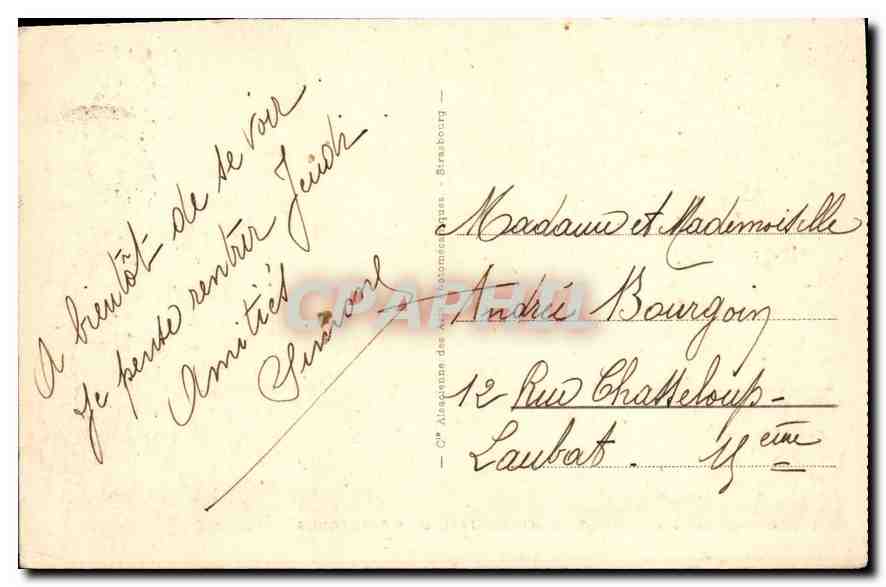 A bientôt de se voir
Je pense rentrer Jeudi
Amitiés
Simone
— Cie Alsacienne des Arts Photomécaniques. - Strasbourg —
Madame et Mademoiselle
André Bourgoin
12 Rue Chasseloup-
Laubat. 15ème
CPAPHIL